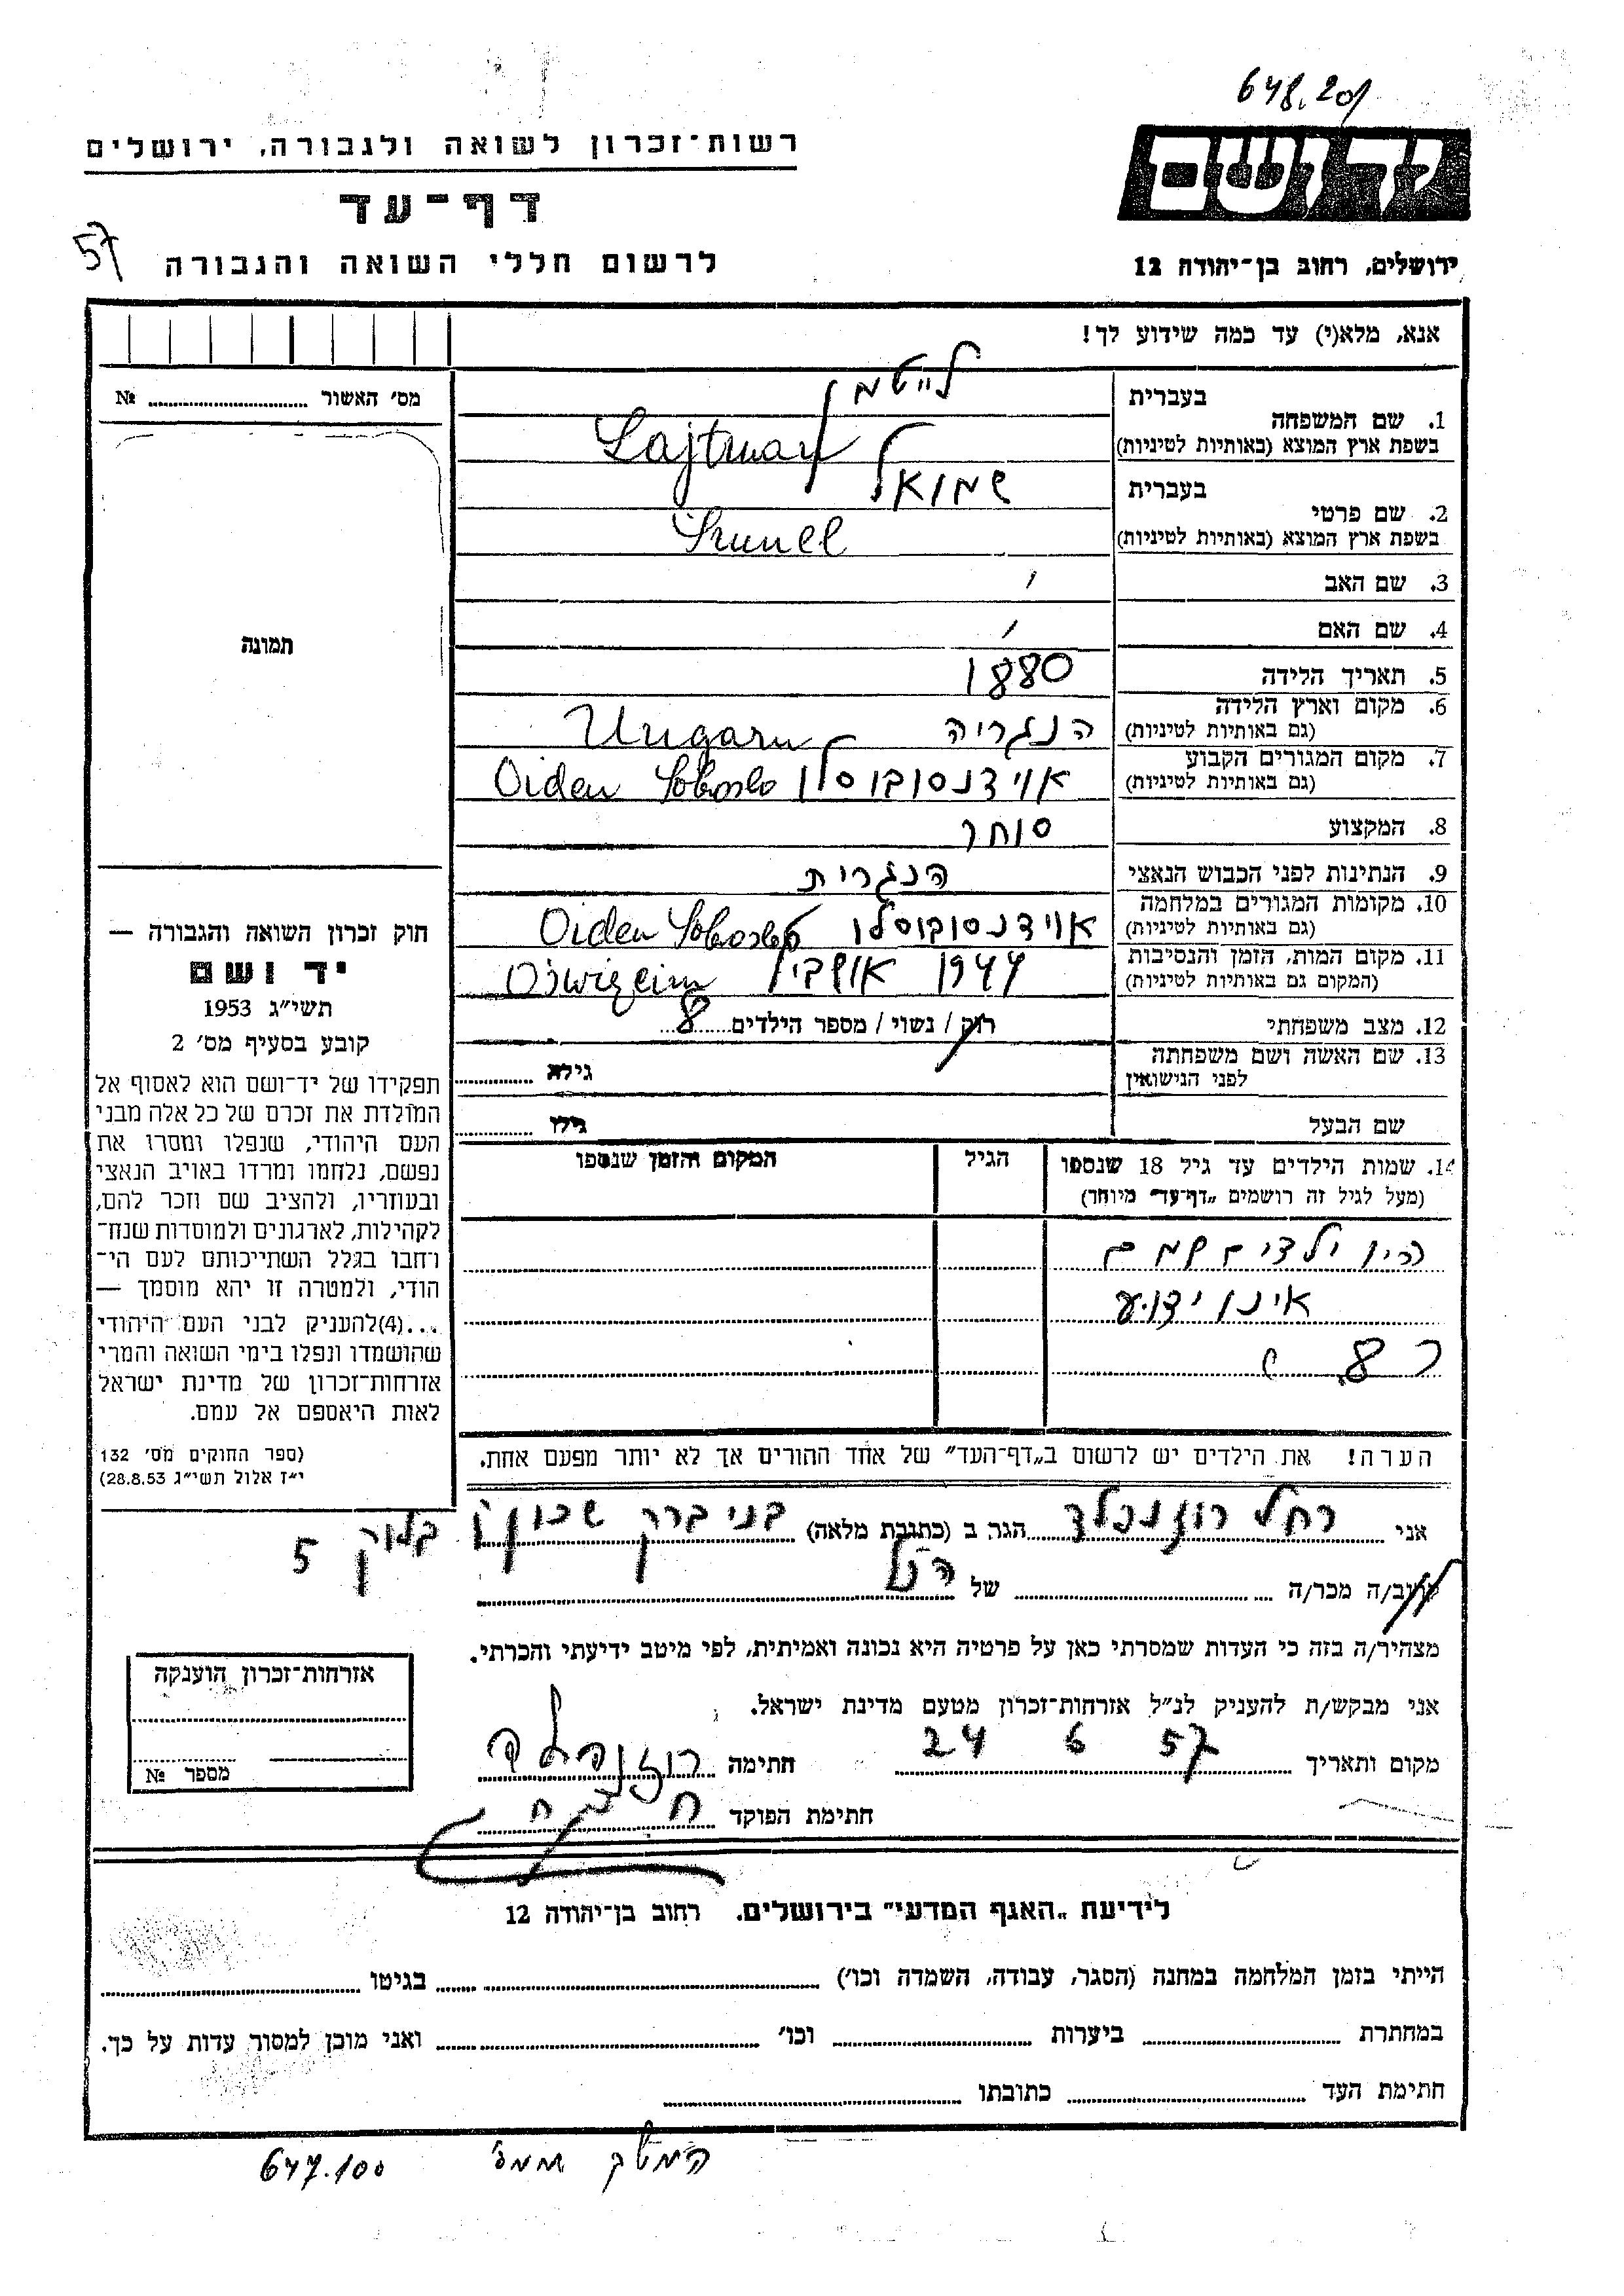 648.201
רשות־זכרון לשואה ולגבורה, ירושלים
יד ושם
דף־עד
57
לרשום חללי השואה והגבורה
ירושלים, רחוב בן־יהודה 12
אנא, מלא(י) עד כמה שידוע לך!
מס׳ האשור ........ №
תמונה
1. שם המשפחה
בעברית
לייטמן
בשפת ארץ המוצא (באותיות לטיניות)
Lajtman
2. שם פרטי
בעברית
שמואל
בשפת ארץ המוצא (באותיות לטיניות)
3. שם האב
4. שם האם
5. תאריך הלידה
1880
6. מקום וארץ הלידה
(גם באותיות לטיניות)
הנגריה Ungarn
7. מקום המגורים הקבוע
(גם באותיות לטיניות)
אוידנסובוסלו Oiden Soboslo
8. המקצוע
סוחר
9. הנתינות לפני הכבוש הנאצי
הנגרית
10. מקומות המגורים במלחמה
(גם באותיות לטיניות)
אוידנסובוסלו Oiden Soboslo
11. מקום המות, הזמן והנסיבות
(המקום גם באותיות לטיניות)
1944
12. מצב משפחתי
רוק / נשוי / מספר הילדים 8
13. שם האשה ושם משפחתה
לפני הנישואין
גילה
שם הבעל
גילו
14. שמות הילדים עד גיל 18 שנספו
(מעל לגיל זה רושמים „דף־עד״ מיוחד)
הגיל
המקום והזמן שנספו
היו ילדים שמם
אינו ידוע
( 8 )
הערה! את הילדים יש לרשום ב„דף־העד״ של אחד ההורים אך לא יותר מפעם אחת.
חוק זכרון השואה והגבורה —
יד ושם
תשי״ג 1953
קובע בסעיף מס׳ 2
תפקידו של יד־ושם הוא לאסוף אל
המולדת את זכרם של כל אלה מבני
העם היהודי, שנפלו ומסרו את
נפשם, נלחמו ומרדו באויב הנאצי
ובעוזריו, ולהציב שם וזכר להם,
לקהילות, לארגונים ולמוסדות שנח־
רחבו בגלל השתייכותם לעם הי־
הודי, ולמטרה זו יהא מוסמך —
...(4)להעניק לבני העם היהודי
שהושמדו ונפלו בימי השואה והמרי
אזרחות־זכרון של מדינת ישראל
לאות היאספם אל עמם.
(ספר החוקים מס׳ 132
י״ז אלול תשי״ג 28.8.53)
אני רחל רוזנפלד הגר ב (כתובת מלאה) בני ברק שכון ו בלוק 5
קרוב/ה מכר/ה ........ של הנ״ל
מצהיר/ה בזה כי העדות שמסרתי כאן על פרטיה היא נכונה ואמיתית, לפי מיטב ידיעתי והכרתי.
אני מבקש/ת להעניק לנ״ל אזרחות־זכרון מטעם מדינת ישראל.
מקום ותאריך 24 6 57 חתימה רוזנפלד
חתימת הפוקד
אזרחות־זכרון הוענקה
מספר №
לידיעת „האגף המדעי״ בירושלים. רחוב בן־יהודה 12
הייתי בזמן המלחמה במחנה (הסגר, עבודה, השמדה וכו׳) ........ בגיטו ........
במחתרת ........ ביערות ........ וכו׳ ........ ואני מוכן למסור עדות על כך.
חתימת העד ........ כתובתו ........
647.100